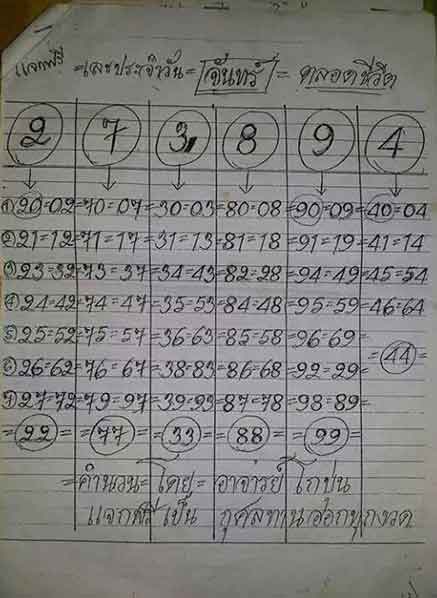 แจกฟรี =เลขประจำวัน= [จันทร์] = ตลอดชีวิต
2 7 3 8 9 4
1 20=02=70=07=30=03=80=08=90=09=40=04
2 21=12=71=17=31=13=81=18=91=19=41=14
3 23=32=73=37=34=43=82=28=94=49=45=54
4 24=42=74=47=35=53=84=48=95=59=46=64
5 25=52=75=57=36=63=85=58=96=69=
6 26=62=76=67=38=83=86=68=92=29=
=44=
7 27=72=79=97=39=93=87=78=98=89=
=22= =77= =33= =88= =99=
=คำนวน=โดย= อาจารย์ โกปน
แจกฟรี เป็น กุศลทาน ออกทุกงวด